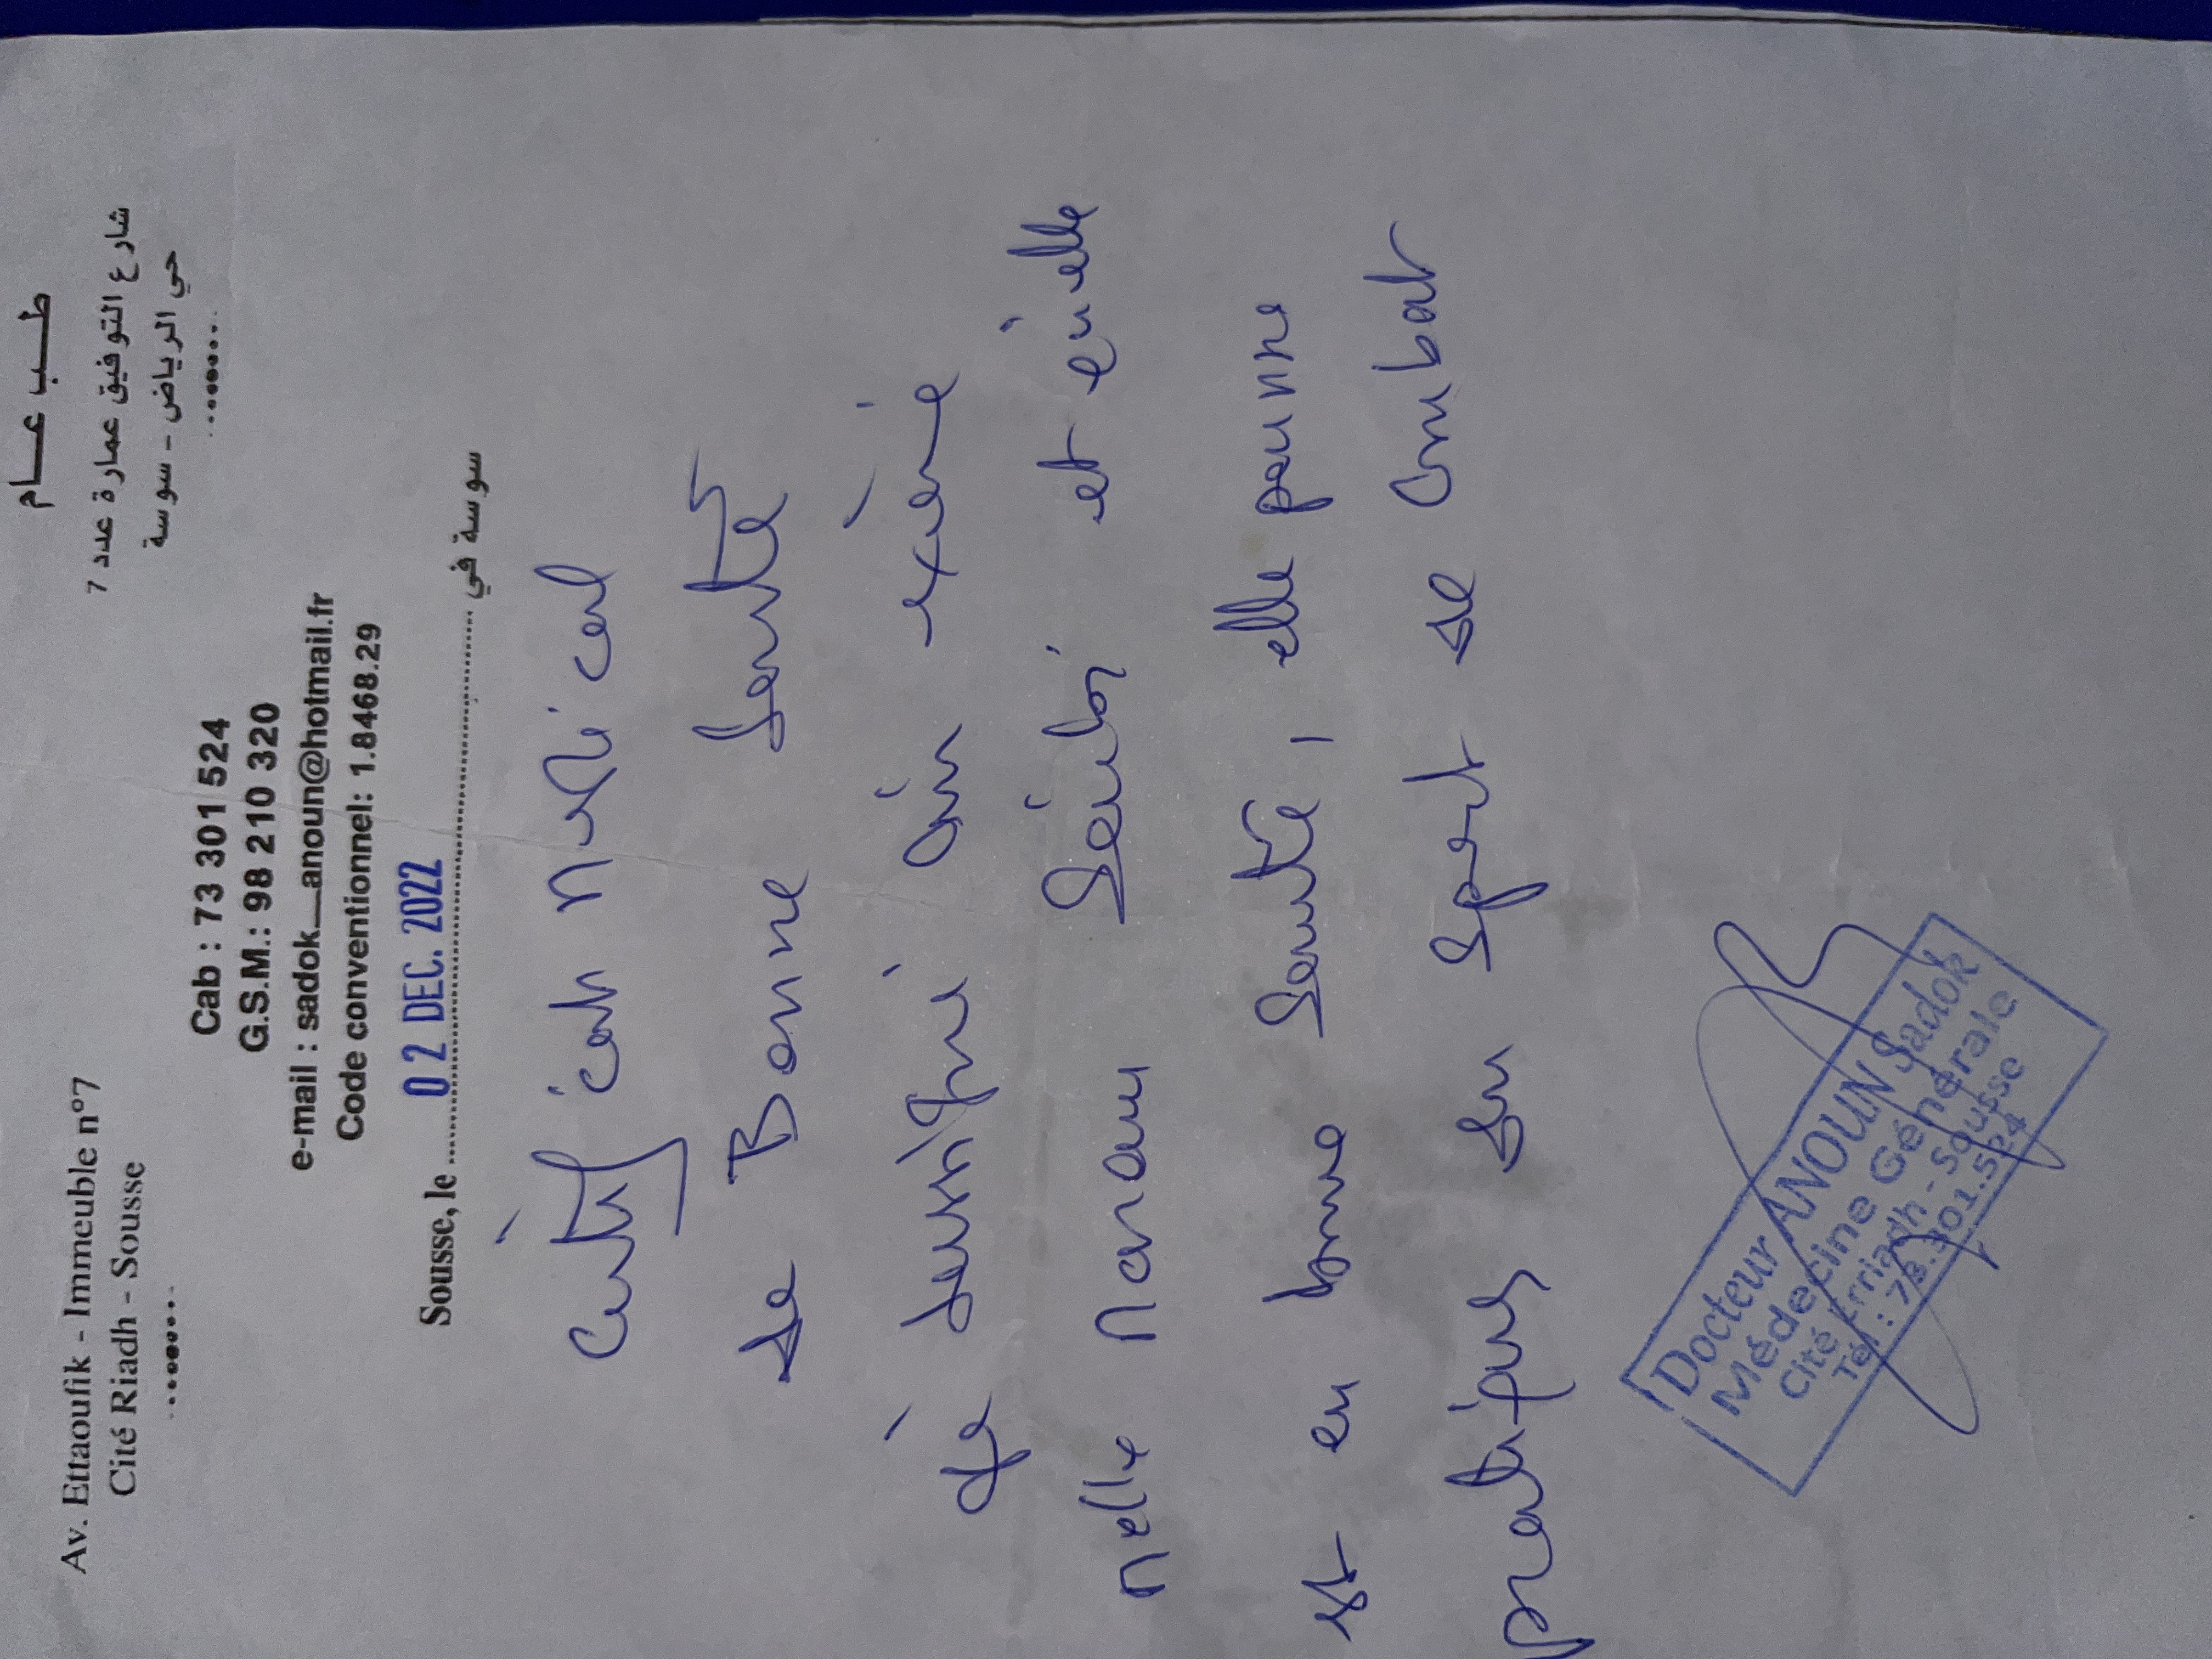 طـــب عـــام
Av. Ettaoufik - Immeuble n°7
شارع التوفيق عمارة عدد 7
Cité Riadh - Sousse
حي الرياض - سوسة
Cab : 73 301 524
G.S.M.: 98 210 320
e-mail : sadok_anoun@hotmail.fr
Code conventionnel: 1.8468.29
Sousse, le 02 DEC. 2022 سوسة في
Certificat Médical
de Bonne Santé
Je soussigné ... examiné
Melle ... et qu'elle
est en bonne Santé, elle
pratiquer du Sport de Combat
Docteur ANOUN Sadok
Médecine Générale
Cité Erriadh - Sousse
Tél : 73.301.524